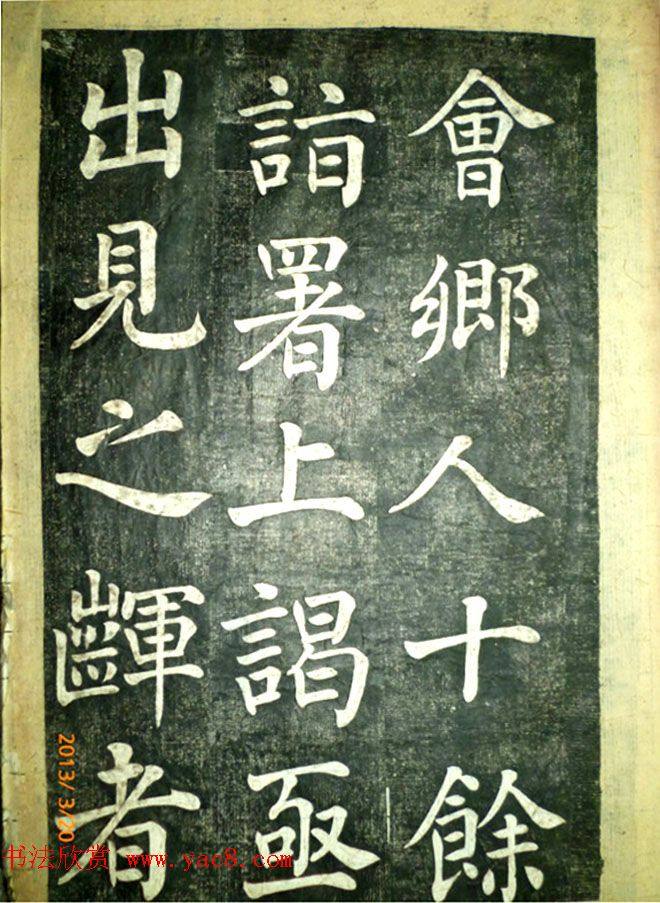 會鄉人十餘
詣署上謁亟
出見之齳者
2013/3/20
书法欣赏 www.yac8.com